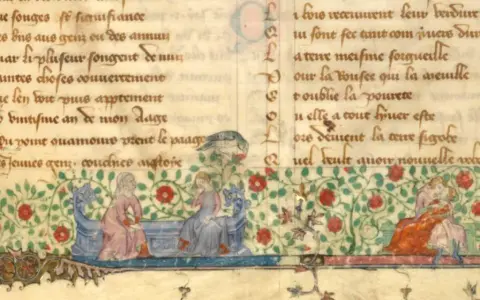 de songes est signifiance
es biens aus gens ou des annuis
car li pluseur songent de nuis
aintes choses couvertement
Que len voit puis appertement
u vintisme an de mon aage
Ou point quamours prent le paage
es jeunes gens couchies
i bois recuevrent leur verdure
ui sont sec tant com yvers dure
a terre meisme sorgueille
our la rousee qui la mueille
t oublie la povrete
u elle a tout lyver este
ors devient la terre si gobe
uel veult avoir nouvelle robe